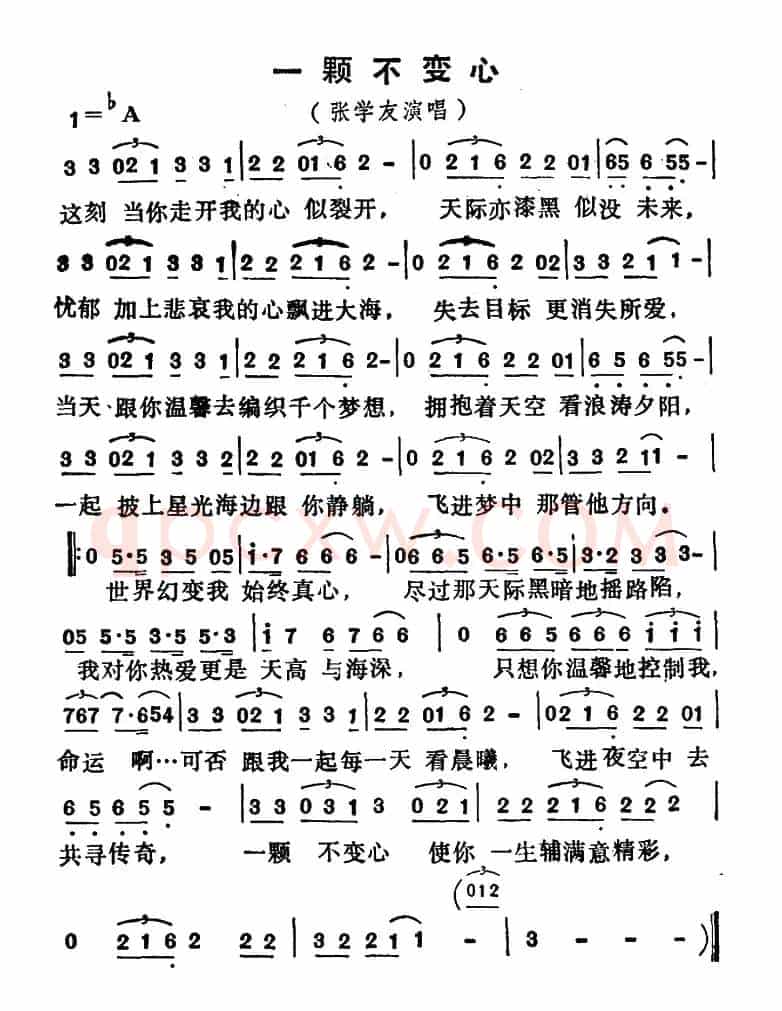 一颗不变心
1=♭A （张学友演唱）
3 3 021 3 3 1|2 2 01·6 2 -|0 216 2 2 01|65 6 55-|
这刻 当你走开我的心 似裂开， 天际亦漆黑 似没 未来，
3 3 021 3 3 1|2 2 216 2 -|0 216 2 02|3 3 2 1 1 -|
忧郁 加上悲哀我的心飘进大海， 失去目标 更消失所爱，
3 3 021 3 3 1|2 2 216 2-|0 216 2 2 01|6 5 6 55-|
当天 跟你温馨去编织千个梦想， 拥抱着天空 看浪涛夕阳，
3 3 021 3 3 1|2 2 016 2 -|0 216 2 02|3 3 2 11 -|
一起 披上星光海边跟 你静躺， 飞进梦中 那管他方向。
‖:0 5·5 3 5 05|i·7 6 6 6 -|06 6 5 6·5 6·5|3·2 3 3 3-|
世界幻变我 始终真心， 尽过那天际黑暗地摇路陷，
05 5·5 3·5 5·3|i 7 6 7 6 6|0 6 6 5 6 6 6 i i i|
我对你热爱更是 天高 与海深， 只想你温馨地控制我，
767 7·654|3 3 021 3 3 1|2 2 016 2 -|0216 2 2 01|
命运 啊…可否 跟我一起每一天 看晨曦， 飞进夜空中 去
6 5 6 5 5 -|3 3 031 3 021|2 2 216 2 2 2|
共寻传奇， 一颗 不变心 使你 一生辅满意精彩，
(012
0 216 2 2 2|3 2 2 1 1 -|3 - - -)‖